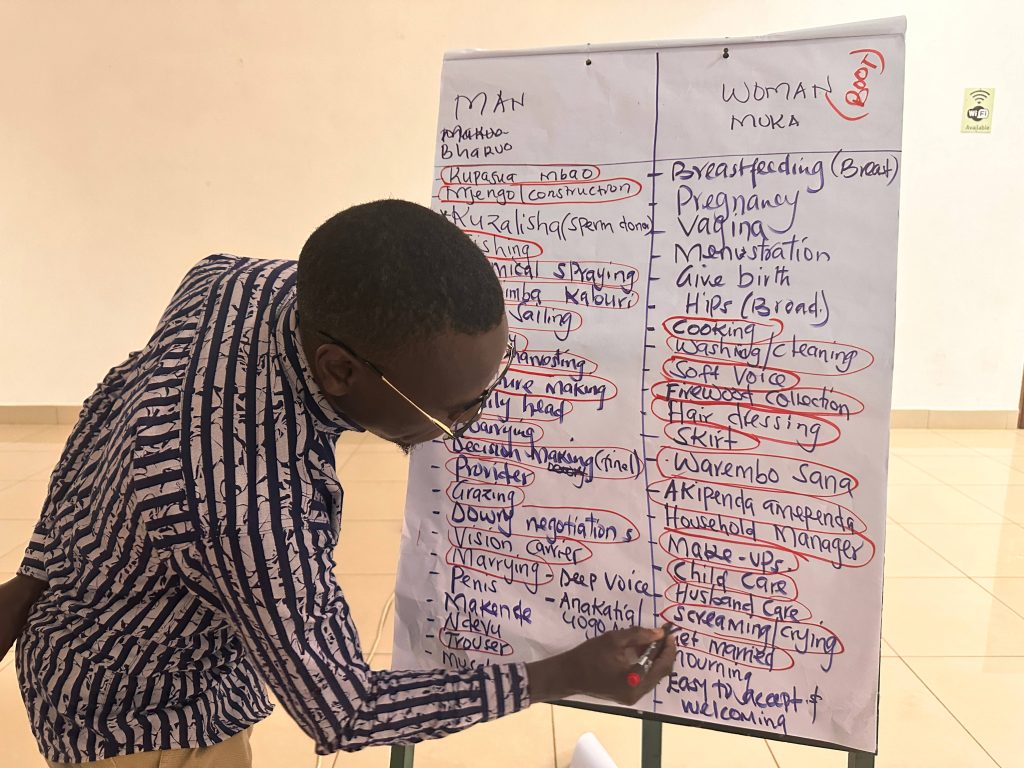 MAN
BHARUO
Kupasua mbao
Mjengo/construction
Kuzalisha (sperm dono
ishing
mical spraying
mba Kaburi
Sailing
harvesting
ure making
ily head
arrying
Decision Making (final)
- Provider
- Grazing
- Dowry negotiations
- Vision carrier
- Marrying - Deep Voice
- Penis - Anakatia
- Makende
- Ndevu
- Trouser
WOMAN (BOOT)
MUKA
- Breastfeeding (Breast)
- Pregnancy
- Vagina
- Menustration
- Give birth
- Hips (Broad)
- Cooking
- Washing/cleaning
- Soft Voice
- Firewood collection
- Hair dressing
- Skirt
- Warembo Sana
- Akipenda amependa
- Household Manager
- Make-ups.
- Child Care
- Husband Care
- Screaming/crying
et married
mourning
- Easy to accept &
welcoming
WiFi
Available